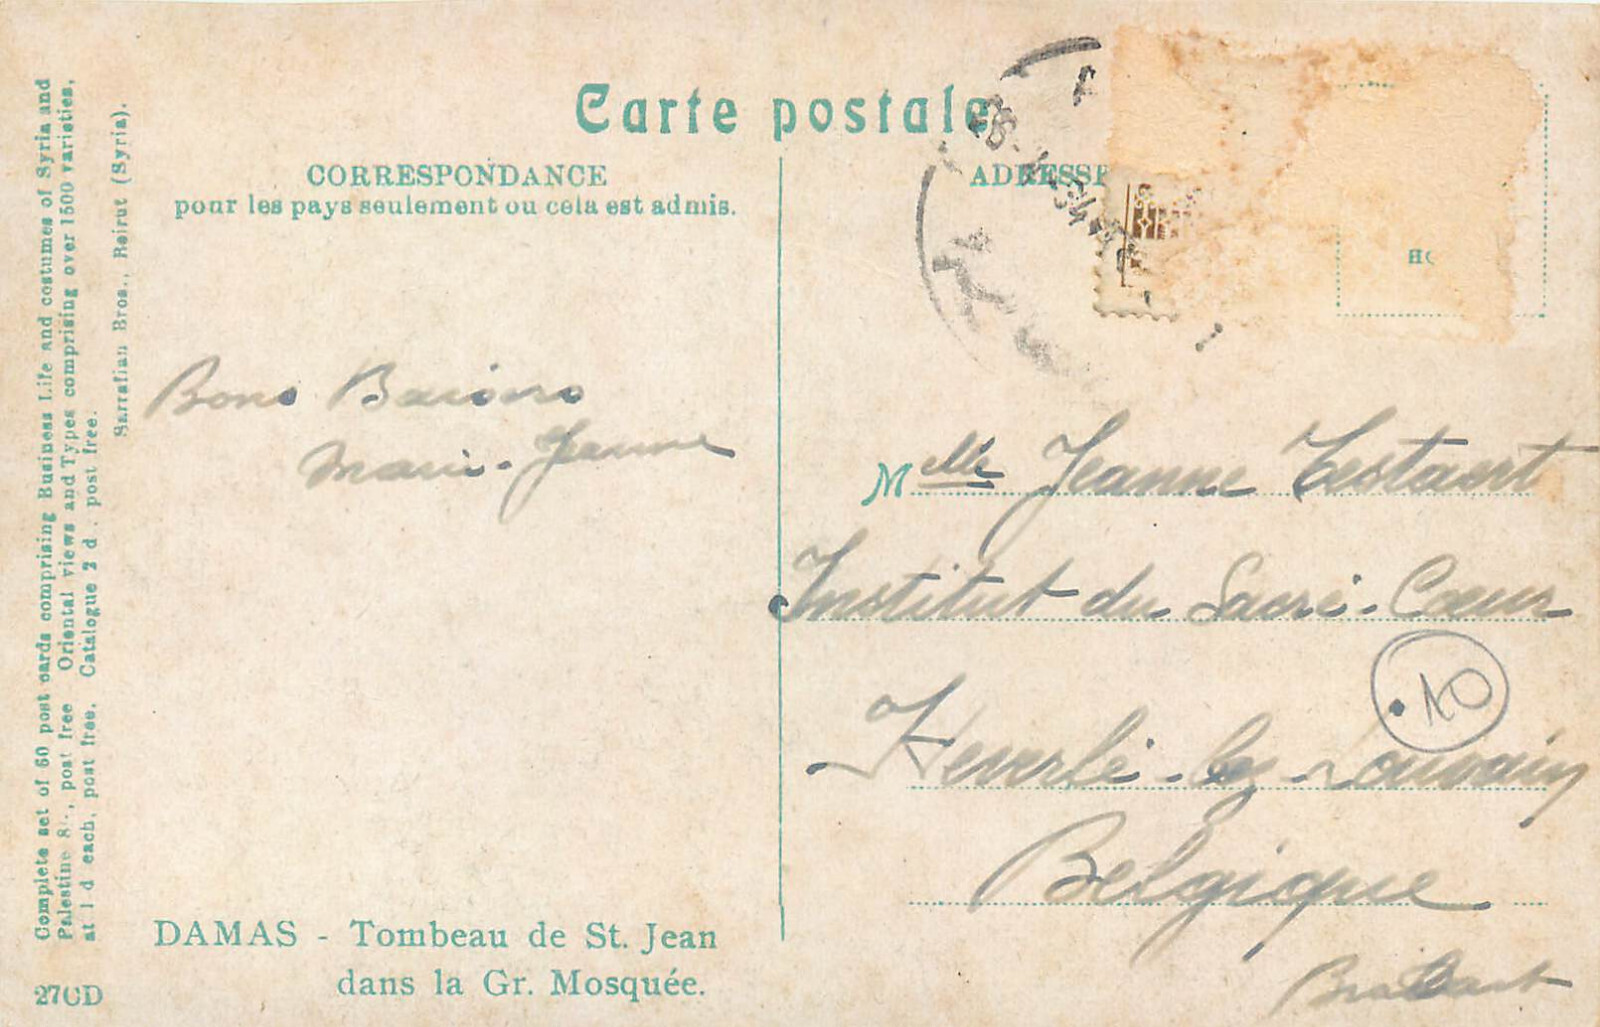 Carte postale
CORRESPONDANCE
pour les pays seulement ou cela est admis.
ADRESSE
Complete set of 60 post cards comprising Business Life and costumes of Syria and
Palestine 8/-, post free Oriental views and Types comprising over 1500 varieties,
at 1 d each, post free. Catalogue 2 d. post free.
Sarrafian Bros., Beirut (Syria).
Bons Baisers
Marie-Jeanne
Melle Jeanne Testaert
Institut du Sacré-Cœur
Heverlé-lez-Louvain
10
Belgique
Brabant
DAMAS - Tombeau de St. Jean
dans la Gr. Mosquée.
27CD